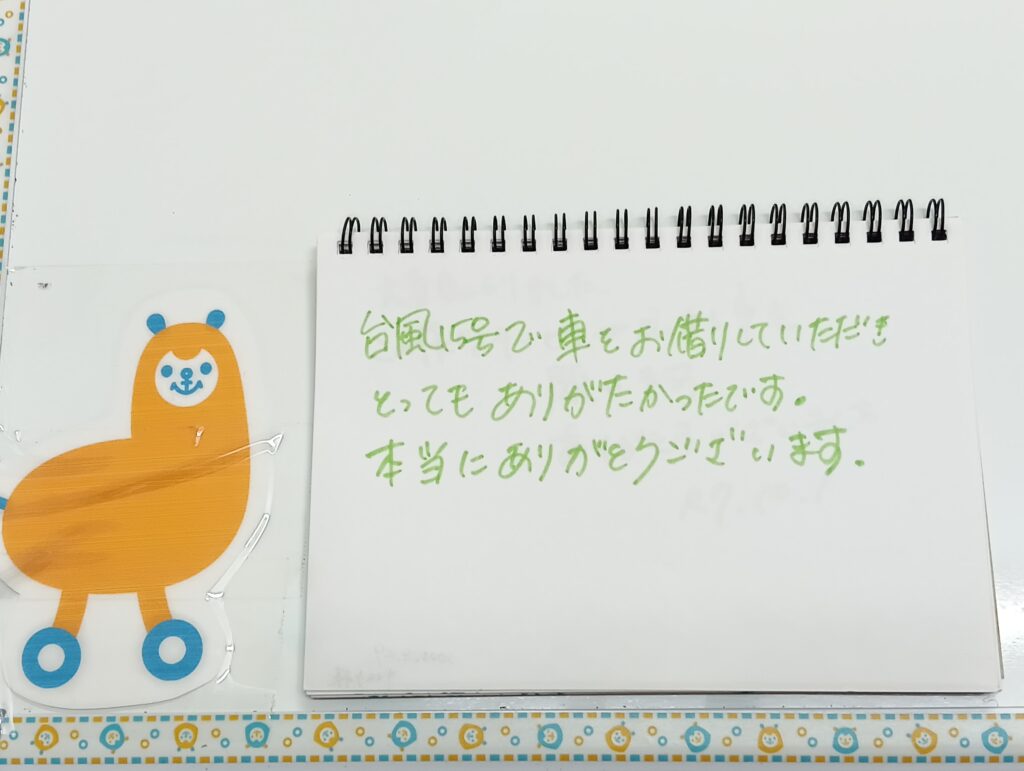 台風15号で車をお借りしていただき
とってもありがたかったです。
本当にありがとうございます。